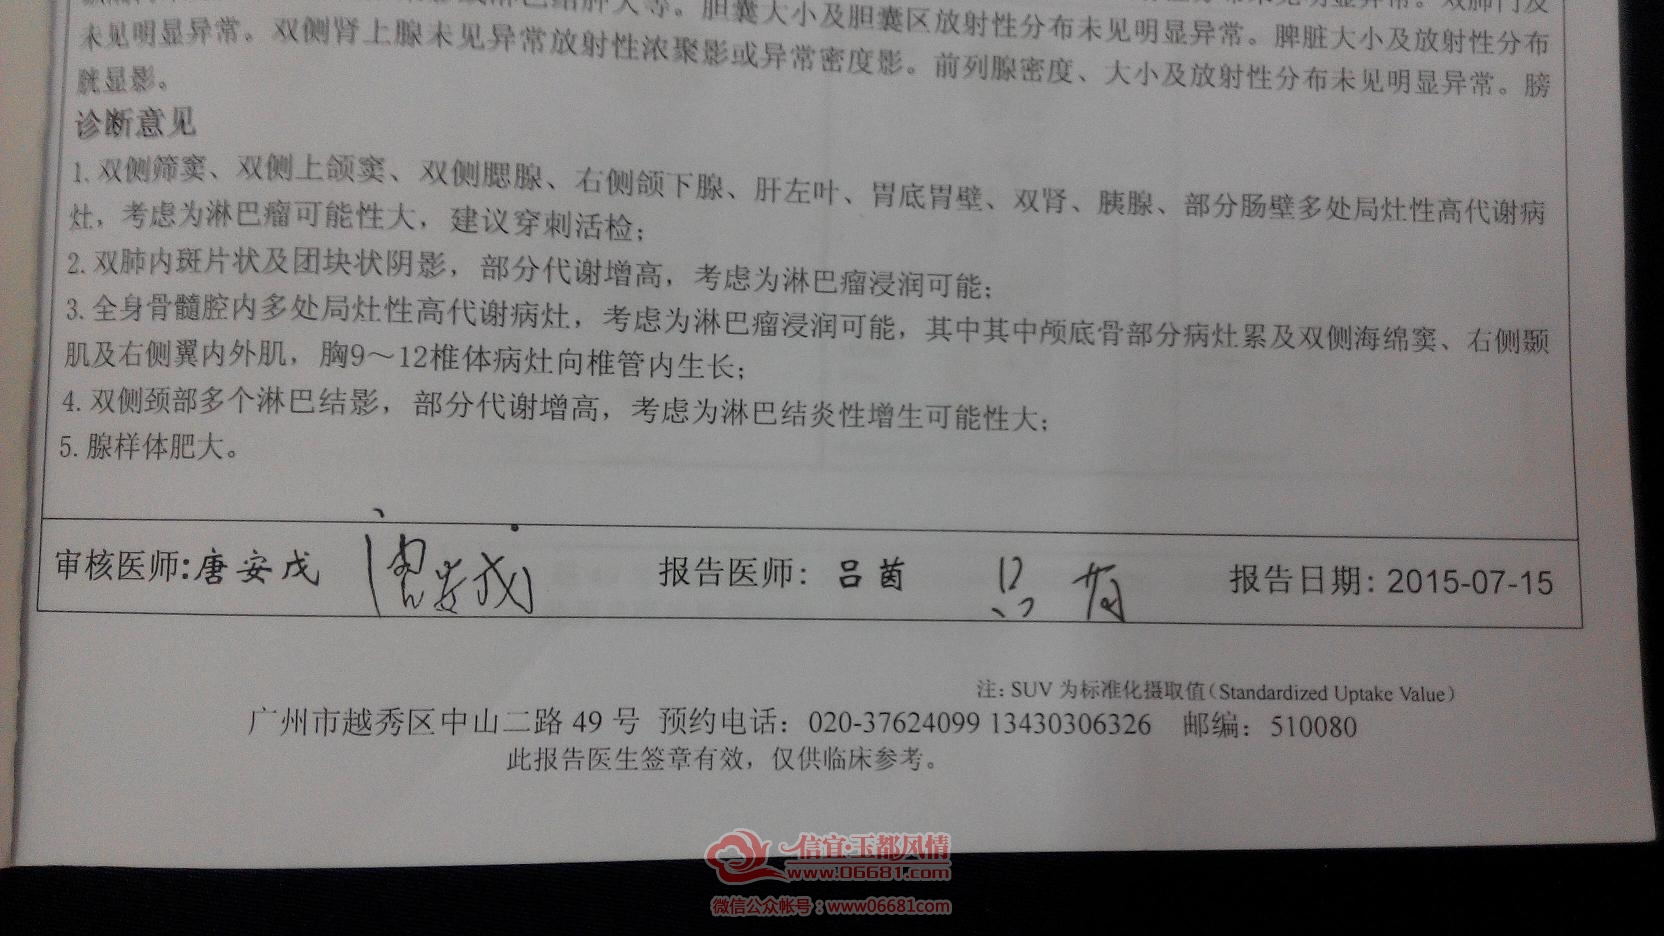 结肿大等。胆囊大小及胆囊区放射性分布未见明显异常。脾脏大小及放射性分布
未见明显异常。双侧肾上腺未见异常放射性浓聚影或异常密度影。前列腺密度、大小及放射性分布未见明显异常。膀
胱显影。
诊断意见
1. 双侧筛窦、双侧上颌窦、双侧腮腺、右侧颌下腺、肝左叶、胃底胃壁、双肾、胰腺、部分肠壁多处局灶性高代谢病
灶，考虑为淋巴瘤可能性大，建议穿刺活检；
2. 双肺内斑片状及团块状阴影，部分代谢增高，考虑为淋巴瘤浸润可能；
3. 全身骨髓腔内多处局灶性高代谢病灶，考虑为淋巴瘤浸润可能，其中其中颅底骨部分病灶累及双侧海绵窦、右侧颞
肌及右侧翼内外肌，胸9～12椎体病灶向椎管内生长；
4. 双侧颈部多个淋巴结影，部分代谢增高，考虑为淋巴结炎性增生可能性大；
5. 腺样体肥大。
审核医师：唐安戊 唐安戊 报告医师：吕茵 吕茵 报告日期：2015-07-15
注：SUV 为标准化摄取值（Standardized Uptake Value）
广州市越秀区中山二路 49 号 预约电话：020-37624099 13430306326 邮编：510080
此报告医生签章有效，仅供临床参考。
信宜·玉都风情
www.06681.com
微信公众帐号：www06681com